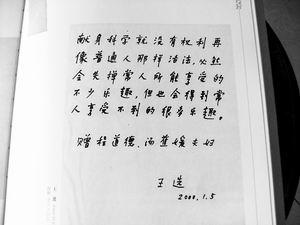 献身科学就没有权利再
像普通人那样活法，必然
会失掉常人所能享受的
不少乐趣，但也会得到常
人享受不到的很多乐趣。
赠程道德、汤蕉媛夫妇
王选
2000.1.5